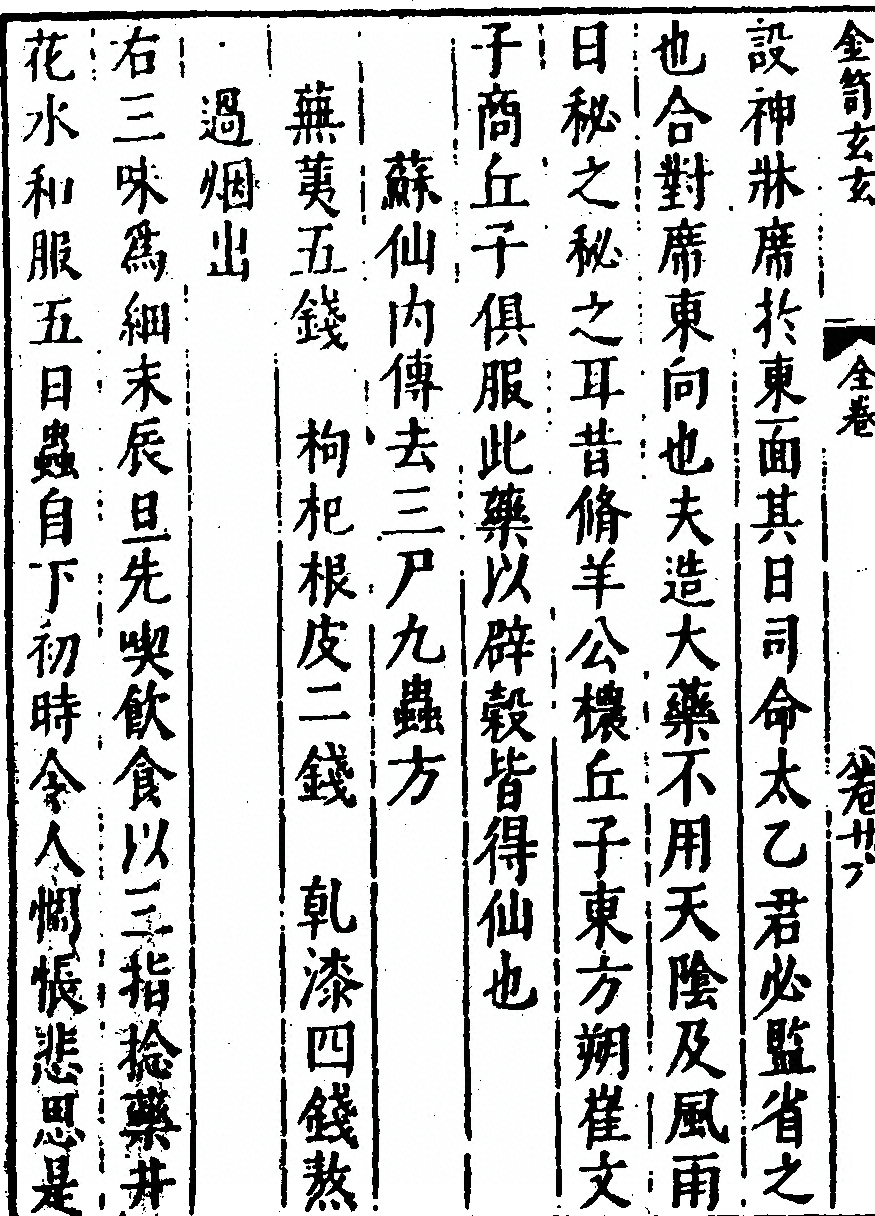 金笥玄玄
全卷
卷廿
設神牀席於東面其日司命太乙君必監省之
也合對席東向也夫造大藥不用天陰及風雨
日秘之秘之耳昔脩羊公櫰丘子東方朔崔文
子商丘子俱服此藥以辟榖皆得仙也
蘇仙内傳去三尸九蟲方
蕪荑五錢 枸杞根皮二錢 乹漆四錢熬
過烟出
右三味爲細末辰旦先喫飲食以三指捻藥井
花水和服五日蟲自下初時令人惆悵悲思是